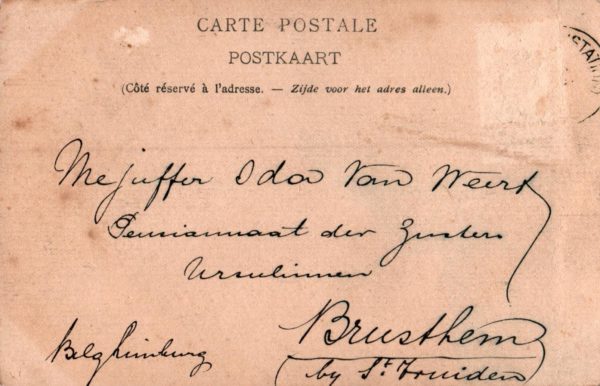 CARTE POSTALE
POSTKAART
(Côté réservé à l'adresse. — Zijde voor het adres alleen.)
Mejuffer Oda Van Weert
Pensiannaat der Zusters
Ursulinnen
Brusthem
by St. Truiden
Belg Limburg